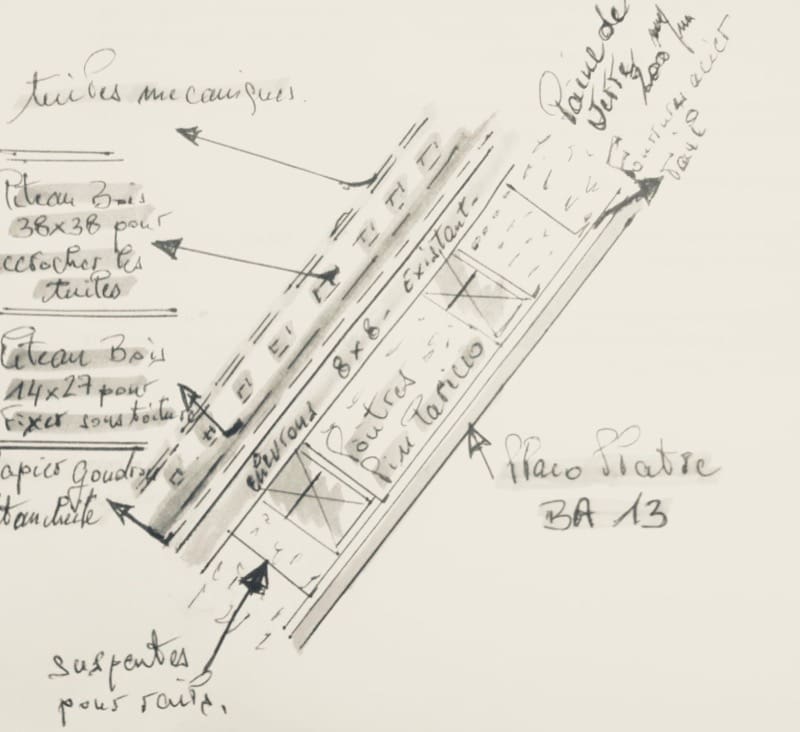 tuiles mecaniques.
Liteau Bois
38x38 pour
accrocher les
tuiles
Liteau Bois
14x27 pour
Fixer sous toiture
apier Goudron
tanchéité
suspentes
pour rails.
chevrons 8x8 - existant -
Poutres
Pin Laricio
Laine de
verre
200 m/m
Fourrures acier
rail
Placo Platre
BA 13